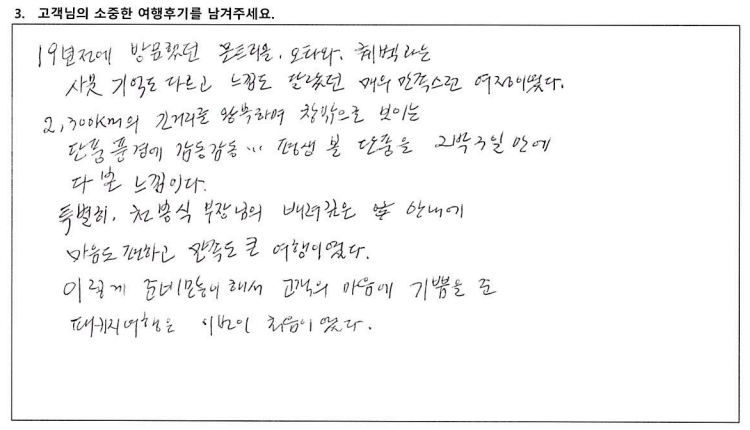 3. 고객님의 소중한 여행후기를 남겨주세요.
19년전에 방문했던 몬트리올, 오타와, 퀘벡과는
사뭇 기억도 다르고 느낌도 달랐던 매우 만족스런 여정이었다.
2,300km의 긴거리를 왕복하며 창밖으로 보이는
단풍 풍경에 감동감동... 평생 볼 단풍을 2박3일 안에
다 본 느낌이다.
특별히, 천봉식 부장님의 배려깊은 안내에
마음도 편하고 만족도 큰 여행이었다.
이렇게 해서 고객의 마음에 기쁨을 준
패키지여행은 이번이 처음이었다.